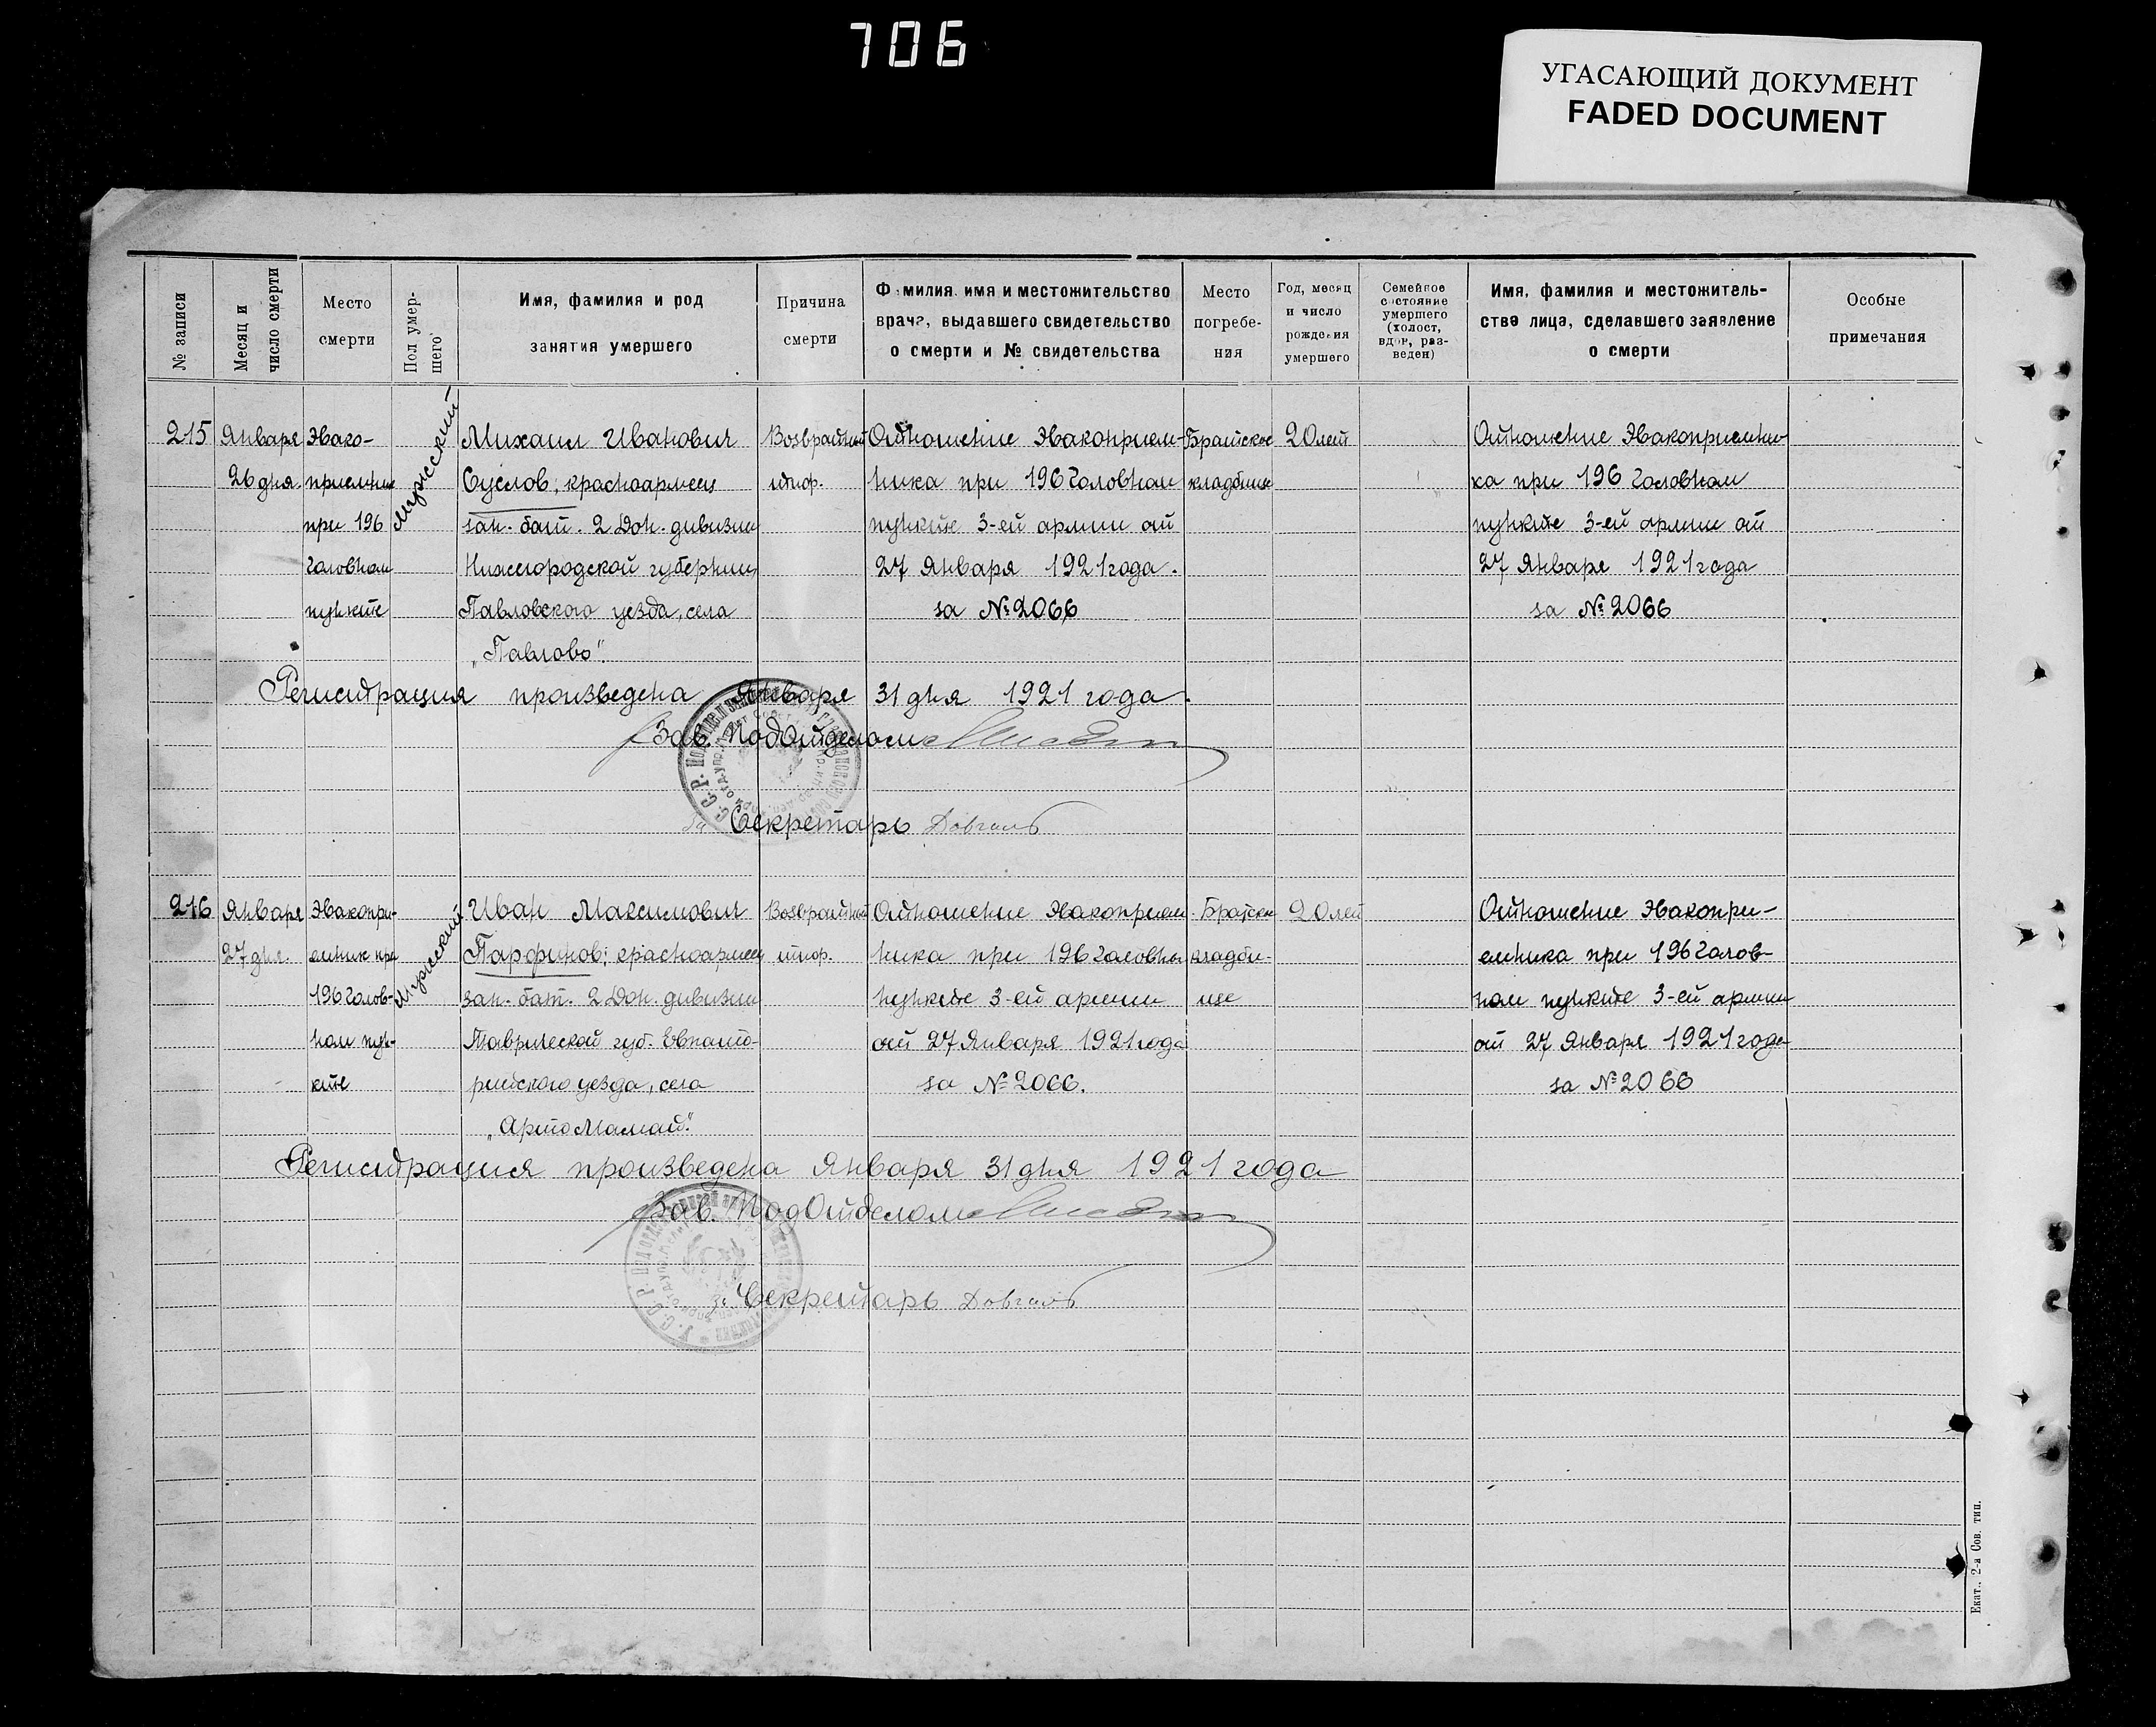 706
УГАСАЮЩИЙ ДОКУМЕНТ
FADED DOCUMENT
№ записи
Месяц и
число смерти
Место
смерти
Пол умер-
шего
Имя, фамилия и род
занятия умершего
Причина
смерти
Фамилия, имя и местожительство
врача, выдавшего свидетельство
о смерти и № свидетельства
Место
погребе-
ния
Год, месяц
и число
рождения
умершего
Семейное
состояние
умершего
(холост,
вдов, раз-
веден)
Имя, фамилия и местожитель-
ство лица, сделавшего заявление
о смерти
Особые
примечания
215
Января
26 дня.
Эвако-
приемник
при 196
головном
пункте
Мужеский
Михаил Иванович
Суслов, красноармеец
зап. бат. 2 Дон. дивизии
Нижегородской губернии,
Павловского уезда, села
„Павлово".
Возвратный
тиф.
Отношение Эвакоприем-
ника при 196 головном
пункте 3-ей армии от
27 Января 1921 года.
за №2066
Братское
кладбище
20 лет
Отношение Эвакоприемни-
ка при 196 головном
пункте 3-ей армии от
27 Января 1921 года
за №2066
Регистрация произведена Января 31 дня 1921 года.
Зав. ПодОтделом
За Секретарь Довгаль
216
Января
27 дня.
Эвакопри-
емник при
196 голов-
ном пун-
кте
Мужеский
Иван Максимович
Парфинов; красноармеец
зап. бат. 2 Дон. дивизии
Таврической губ. Евпато-
рийского уезда, села
„АртоМамай".
Возвратный
тиф.
Отношение Эвакоприем-
ника при 196 головном
пункте 3-ей армии
от 27 Января 1921 года
за №2066.
Братское
кладби-
ще
20 лет
Отношение Эвакопри-
емника при 196 голов-
ном пункте 3-ей армии
от 27 Января 1921 года
за №2066
Регистрация произведена Января 31 дня 1921 года
Зав. ПодОтделом
За Секретарь Довгаль
Екат., 2-я Сов. тип.